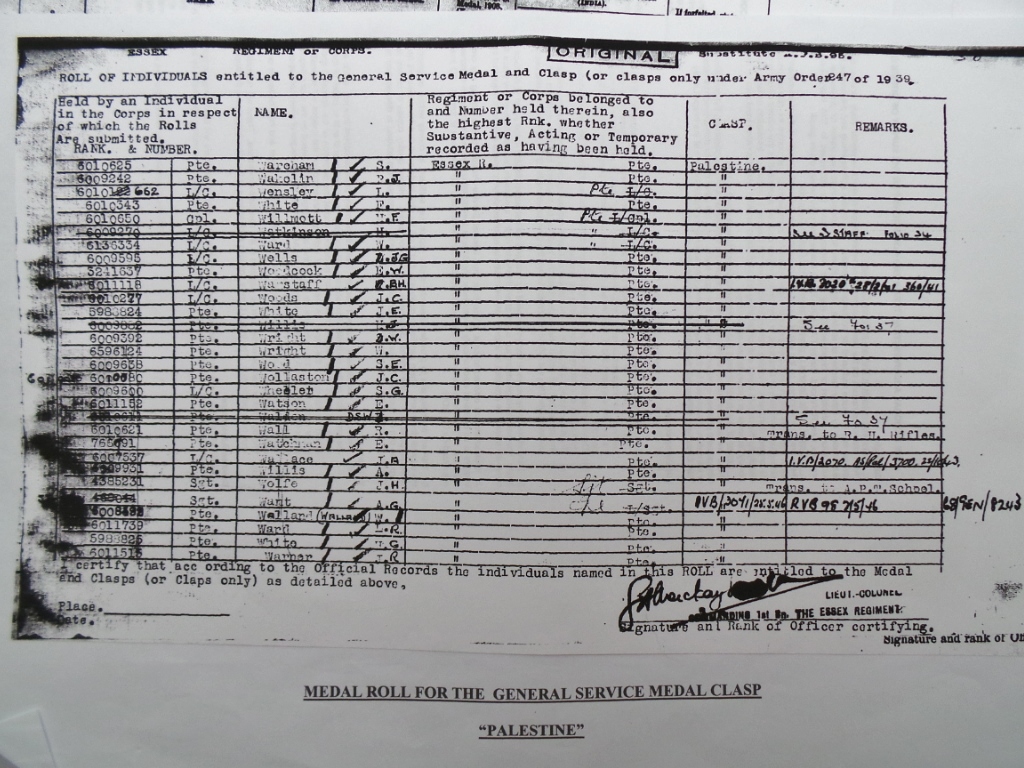 Medal, 1908.
(INDIA).
If forfeited
ESSEX REGIMENT or CORPS. ORIGINAL Substitute
ROLL OF INDIVIDUALS entitled to the General Service Medal and Clasp (or clasps only under Army Order 247 of 1939
Held by an Individual in the Corps in respect of which the Rolls Are submitted. RANK. & NUMBER.
NAME.
Regiment or Corps belonged to and Number held therein, also the highest Rnk. whether Substantive, Acting or Temporary recorded as having been held.
CLASP.
REMARKS.
6010625 Pte. Wareham S. Essex R. Pte. Palestine.
6009242 Pte. Wakelin J. " Pte. "
662 L/C. Wensley L. " Pte L/C. "
6010343 Pte. White F. " Pte. "
6010650 Cpl. Willmott F " Pte L/Cpl. "
6009270 L/C. Watkinson " L/C. " See S STAFF FOLIO 34
6136334 L/C. Ward W. " L/C. "
6009595 L/C. Wells D.JG " Pte. "
3241637 Pte. Woodcock E.W. " Pte. "
6011118 L/C. Warstaff R.BH. " Pte. "
6010277 L/C. Woods J.C. " Pte. "
5983824 Pte. White J.E. " Pte. "
Pte. Willis " Pte. " See Fo 37
6009392 Pte. Wright D.W. " Pte. "
6396124 Pte. Wright W. " Pte. "
6009638 Pte. S.E. " Pte. "
Pte. Wollaston J.C. " Pte. "
6009600 L/C. Wheeler S.G. " Pte. "
6011152 Pte. Watson E. " Pte. "
Pte. Walden DSW " Pte. " See Fo 37
6010621 Pte. Wall R. " Pte. " Trans. to R. U. Rifles.
Pte. Watchman E. " Pte. "
6007537 L/C. Wallace J.A " Pte. "
6009931 Pte. Willis A. " Pte. "
4385231 Sgt. Wolfe J.H. " Sgt. " Trans. to A.P.T. School.
Sgt. Want A.G " L/Sgt. RVB/2071/25.3.46 RVB 98 7/5/46 68/GEN/8243
Pte. Walland (WALLACE) W. " Pte. "
6011739 Pte. Ward L.R. " Pte. "
5988825 Pte. White G. " Pte. "
6011515 Pte. Warner J.R " Pte. "
I certify that acc ording to the Official Records the individuals named in this ROLL are entitled to the Medal
and Clasps (or Claps only) as detailed above.
LIEUT.-COLONEL
Place.
COMMANDING 1st Bn. THE ESSEX REGIMENT.
Date.
Signature and Rank of Officer certifying.
Signature and rank of
MEDAL ROLL FOR THE GENERAL SERVICE MEDAL CLASP
"PALESTINE"